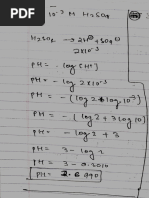 10⁻³ M H₂SO₄
H₂SO₄ → 2H⁺ + SO₄
2x10⁻³
PH = - log [H⁺]
PH = - log 2x10⁻³
PH = - (log 2 + log 10⁻³)
PH = - (log 2 + 3 log 10)
PH = - log 2 + 3
PH = 3 - log 2
PH = 3 - 0.3010
PH =